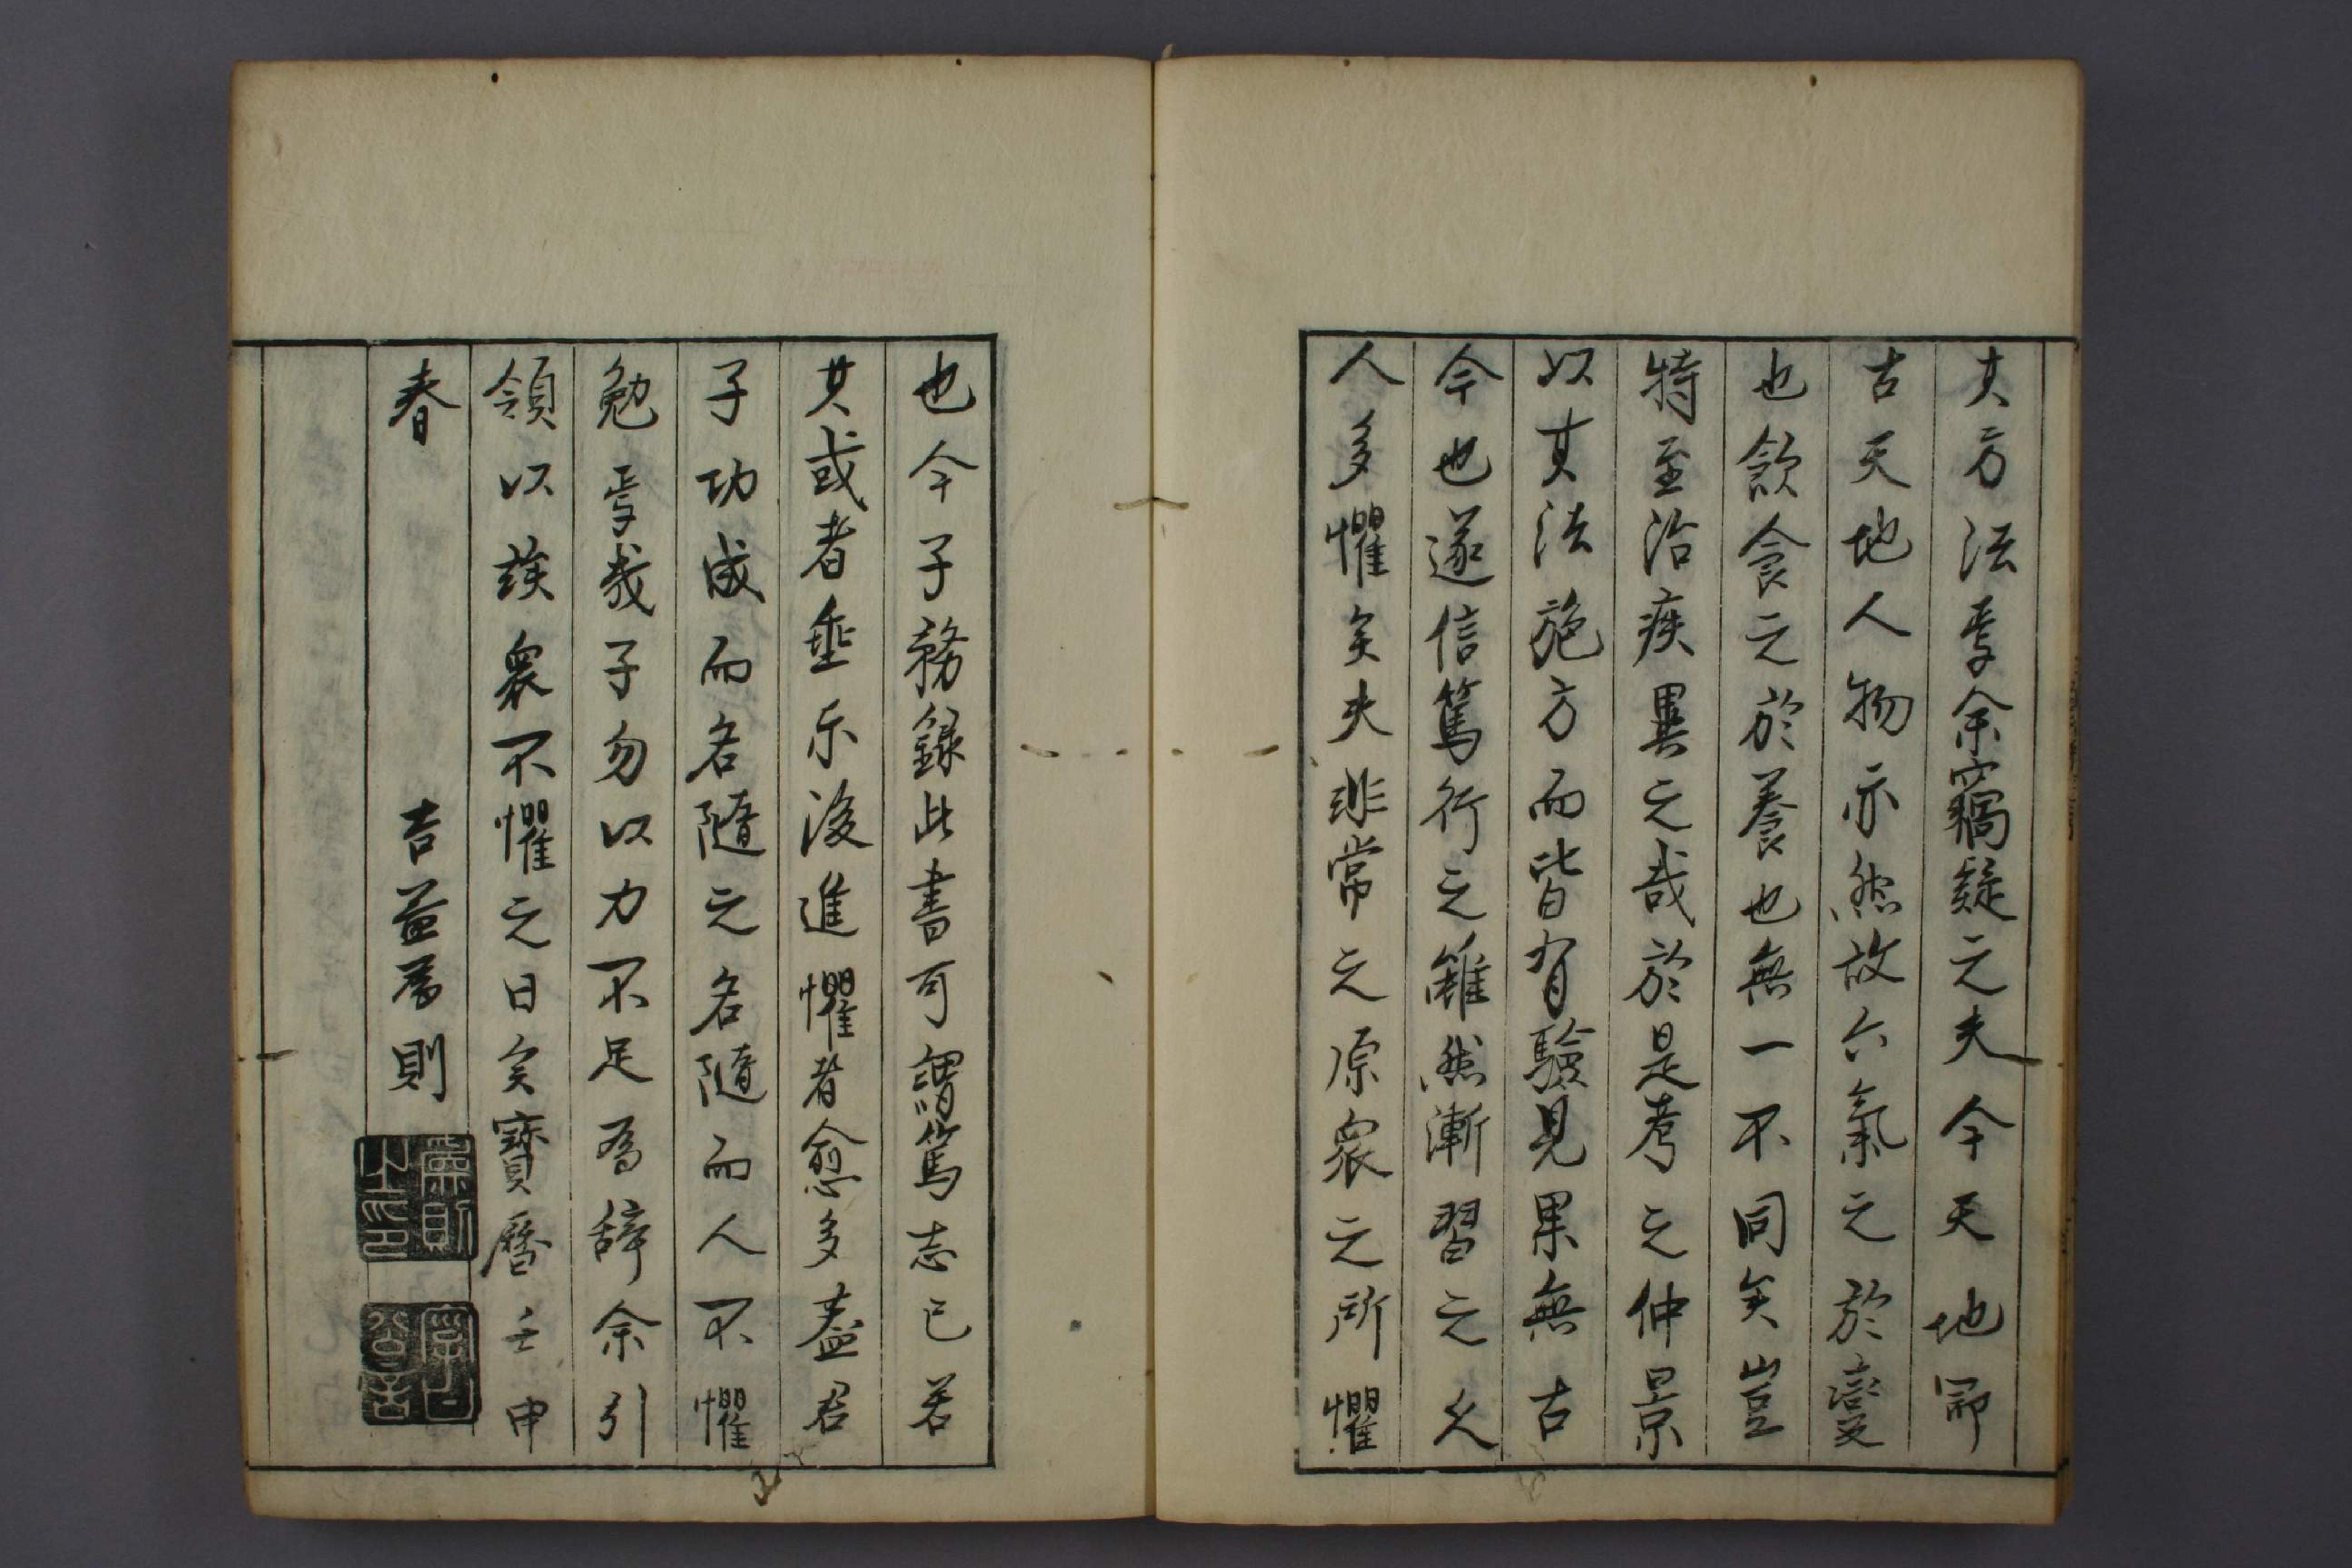 其方法焉余竊疑之夫今天地即
古天地人物亦然故六氣之於變
也飲食之於養也無一不同矣豈
特至治疾異之哉於是考之仲景
以其法施方而皆有驗見果無古
今也遂信篤行之雖然漸習之久
人多懼矣夫非常之原衆之所懼
也今子務錄此書可謂篤志已若
其或者垂示後進懼者愈多蓋君
子功成而名隨之名隨而人不懼
勉焉哉子勿以力不足爲辭余引
領以俟衆不懼之日矣寶曆壬申
春
吉益爲則
爲則之印